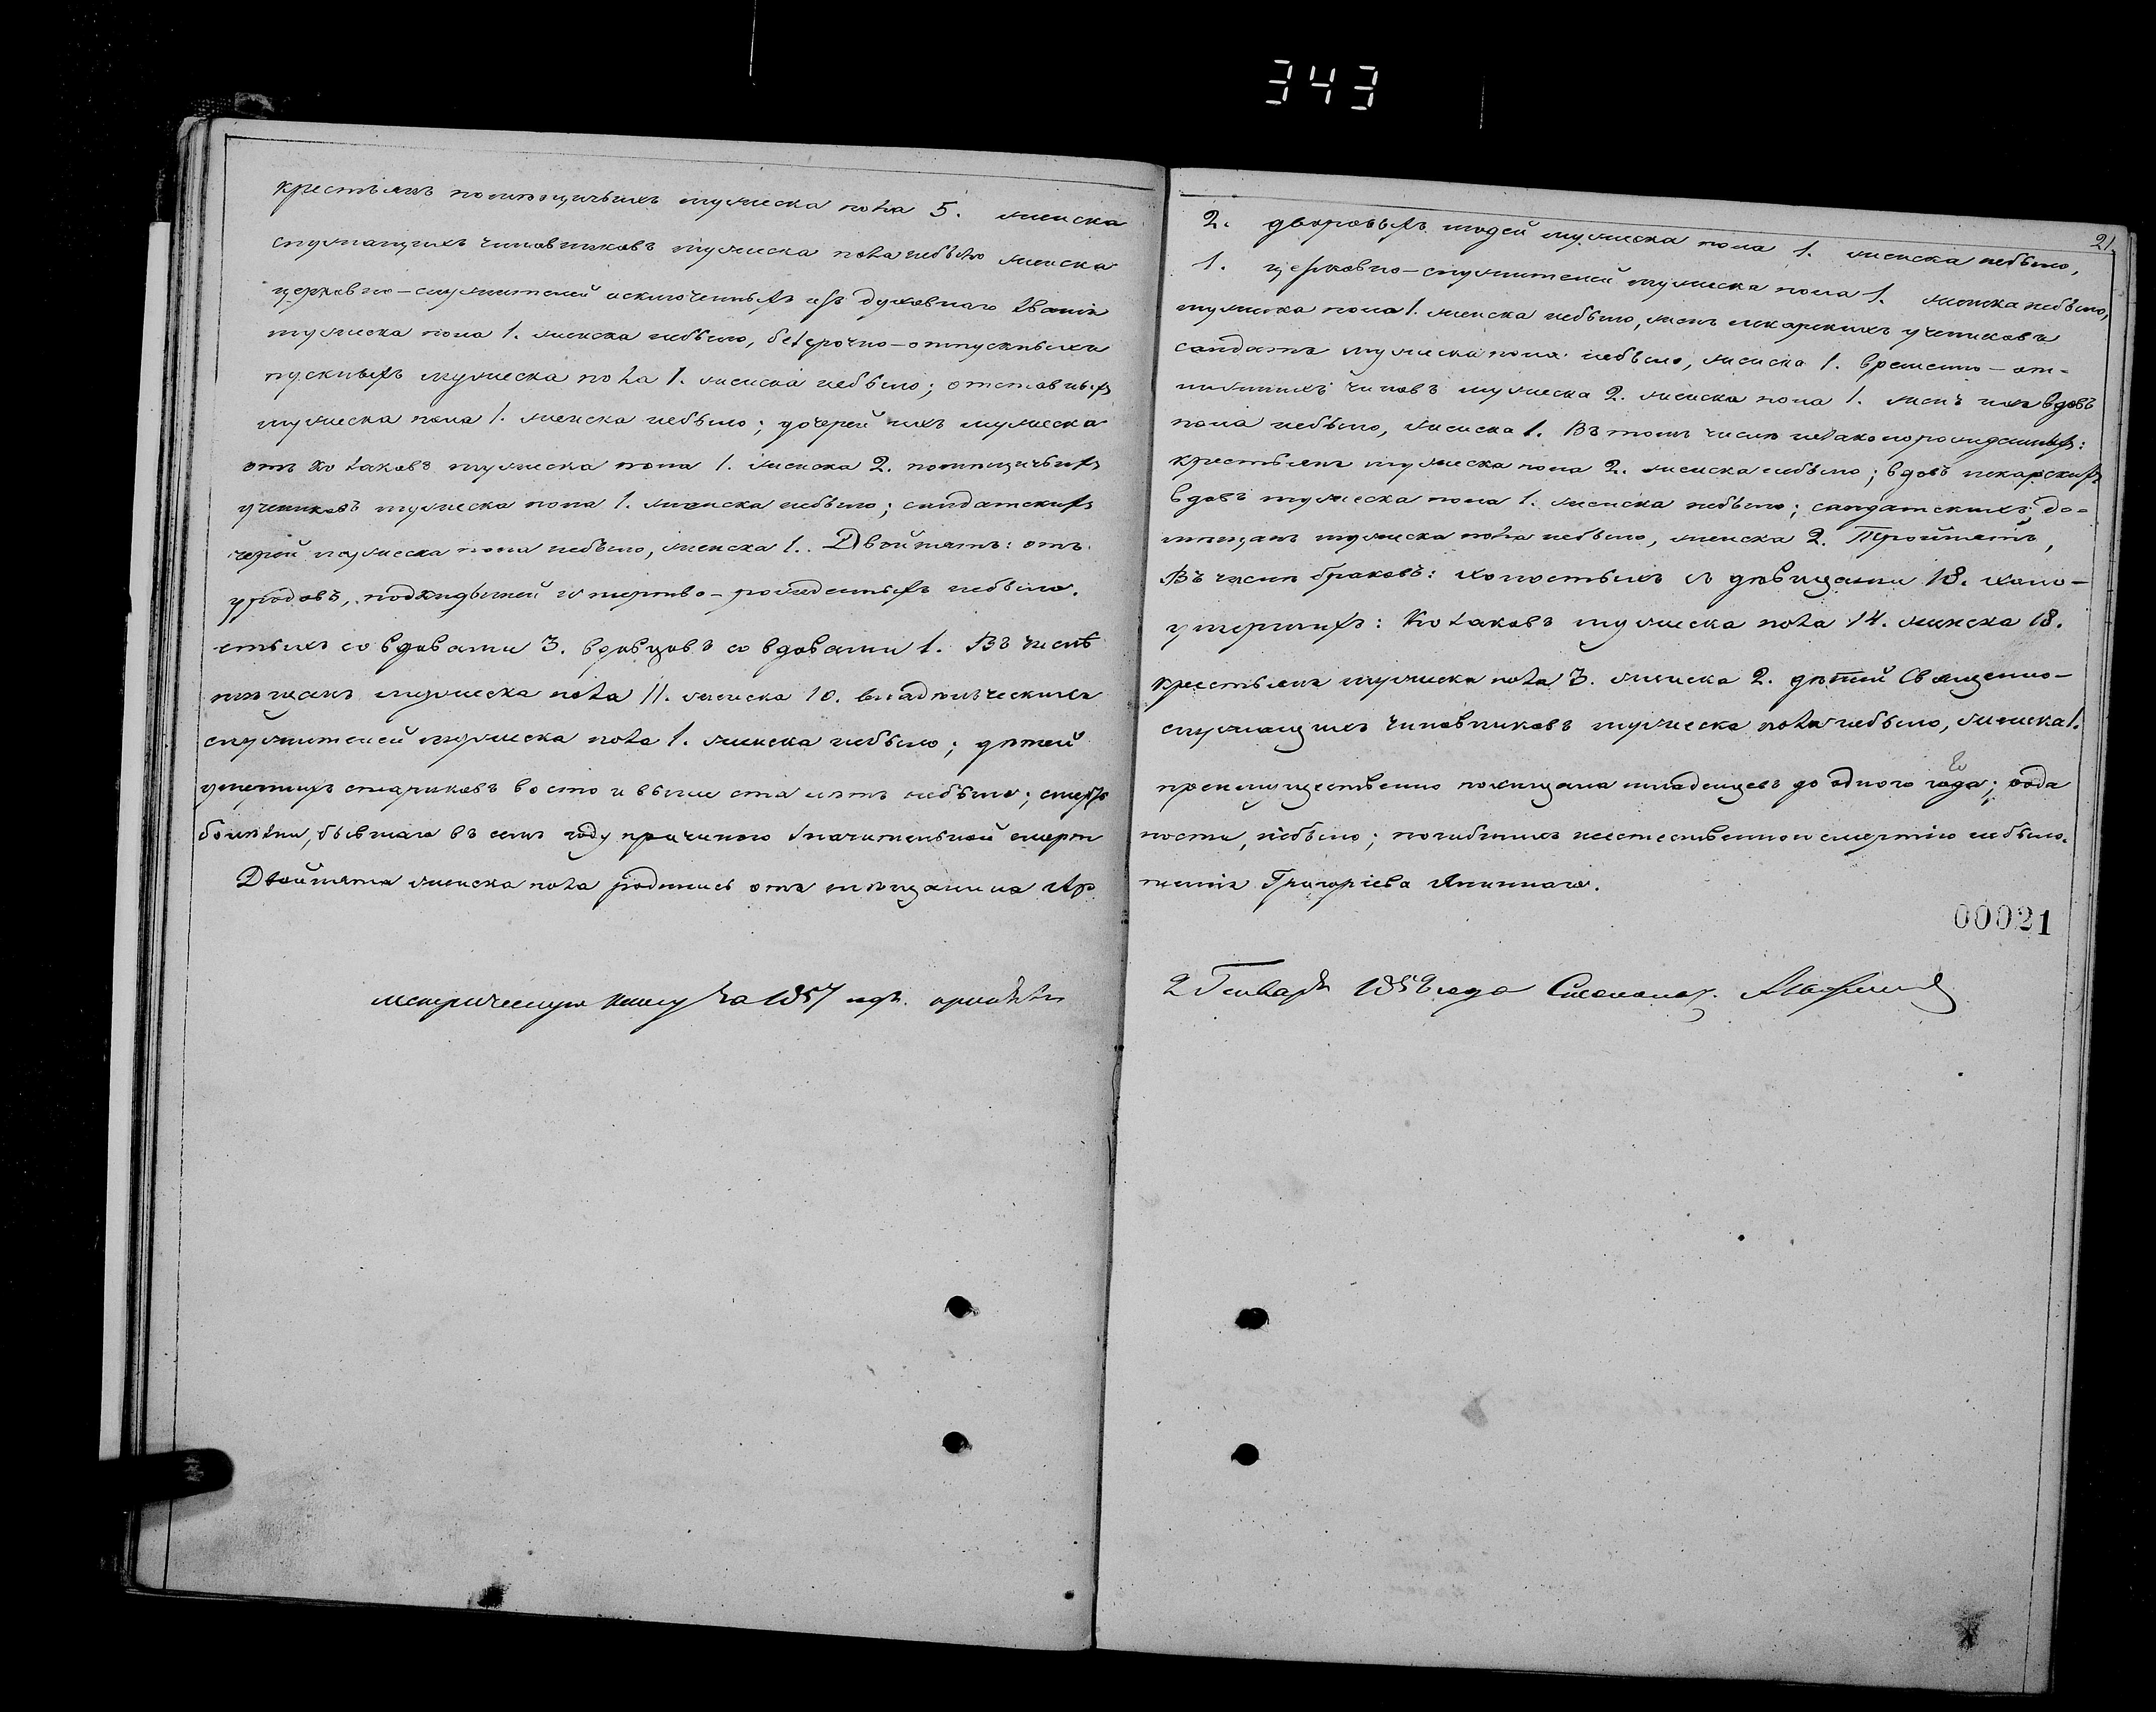 343
21.
крестьянъ помѣщичьихъ мужеска пола 5. женска 2. дворовыхъ людей мужеска пола 1. женска небыло,
служащихъ чиновниковъ мужеска пола небыло женска 1. церковно-служителей мужеска пола 1. женска небыло,
церковно-служителей исключенныхъ изъ духовнаго званія мужеска пола 1. женска небыло, женъ лекарскихъ учениковъ
мужеска пола 1. женска небыло, безсрочно-отпускныхъ солдатъ мужеска пола небыло, женска 1. временно-от-
пускныхъ мужеска пола 1. женска небыло; отставныхъ нижнихъ чиновъ мужеска 2. женска пола 1. женъ ихъ вдовъ
мужеска пола 1. женска небыло; дочерей ихъ мужеска пола небыло, женска 1. Въ томъ числѣ незаконорожденныхъ:
отъ козаковъ мужеска пола 1. женска 2. помѣщичьихъ крестьянъ мужеска пола 2. женска небыло; вдовъ лекарскихъ
учениковъ мужеска пола 1. женска небыло; солдатскихъ вдовъ мужеска пола 1. женска небыло; солдатскихъ до-
черей мужеска пола небыло, женска 1. Двойнятъ: отъ мѣщанъ мужеска пола небыло, женска 2. Тройнятъ,
уродовъ, подкидышей и мертво-рожденныхъ небыло. Въ числѣ браковъ: холостыхъ съ дѣвицами 18. холо-
стыхъ со вдовами 3. вдовцовъ со вдовами 1. Въ числѣ умершихъ: Козаковъ мужеска пола 14. женска 18.
мѣщанъ мужеска пола 11. женска 10. владѣльческихъ крестьянъ мужеска пола 3. женска 2. дѣтей Священно-
служителей мужеска пола 1. женска небыло; дѣтей служащихъ чиновниковъ мужеска пола небыло, женска 1.
умершихъ стариковъ во сто и выше ста лѣтъ небыло; смерть преимущественно похищала младенцевъ до одного года;
болѣзни, бывшаго въ семъ году причиною значительной смерт ности, небыло; погибшихъ неестественною смертію небыло.
Двойнята женска пола родились отъ мѣщанина Григоріева
00021
метрическую книгу за 1857 годъ 2 Генваря 1858 года